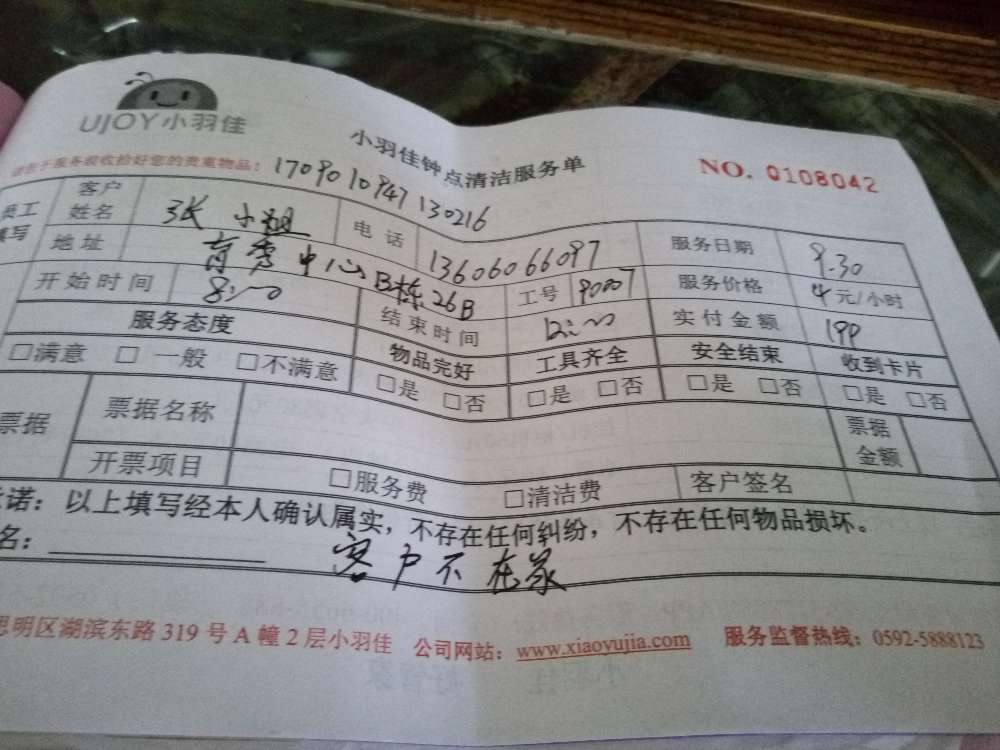 UJOY 小羽佳
小羽佳钟点清洁服务单
NO. 0108042
请在于服务前收拾好您的贵重物品: 1709010947130216
员工填写
客户姓名 张小姐 电话 13606066097 服务日期 9.30
地址 育秀中心B栋26B 工号 90007 服务价格 4元/小时
开始时间 8:00 结束时间 12:00 实付金额
服务态度 物品完好 工具齐全 安全结束 收到卡片
□满意 □一般 □不满意 □是 □否 □是 □否 □是 □否 □是 □否
票据 票据名称 票据金额
开票项目 □服务费 □清洁费 客户签名
诺: 以上填写经本人确认属实，不存在任何纠纷，不存在任何物品损坏。
名: 客户不在家
思明区湖滨东路 319 号 A 幢 2 层小羽佳 公司网站: www.xiaoyujia.com 服务监督热线: 0592-5888123